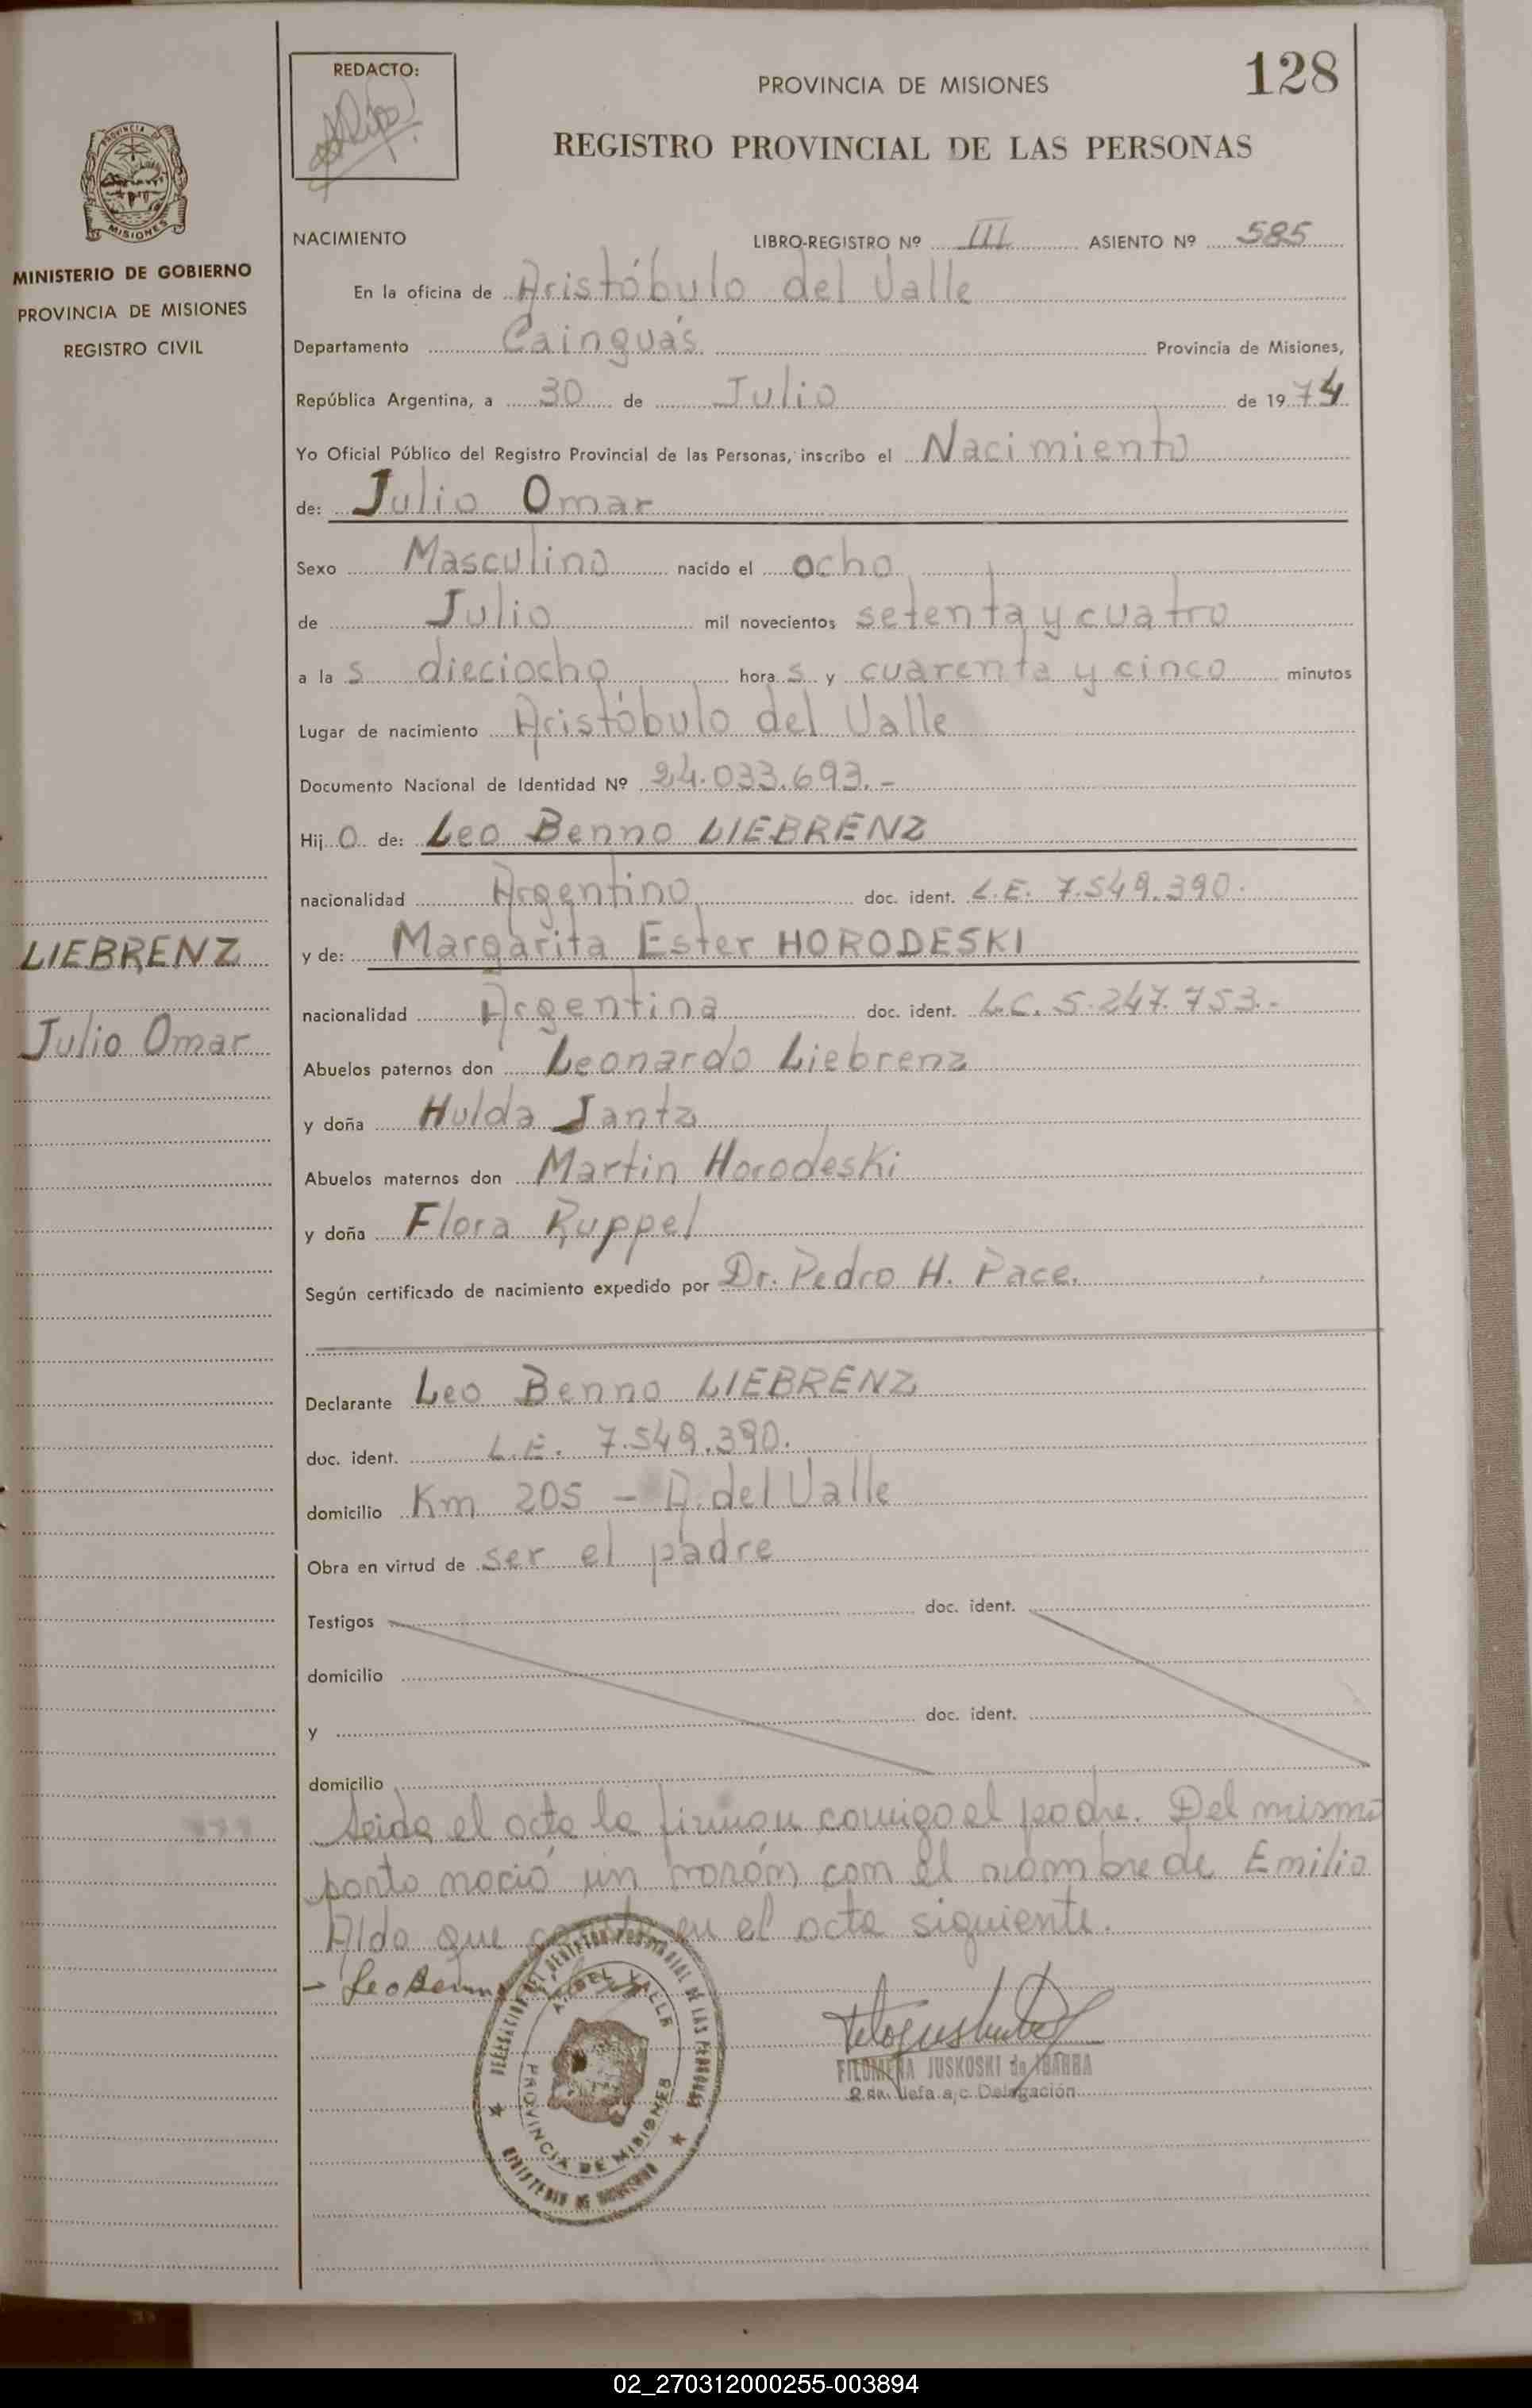 128
REDACTO:
PROVINCIA DE MISIONES
REGISTRO PROVINCIAL DE LAS PERSONAS
PROVINCIA
MISIONES
MINISTERIO DE GOBIERNO
PROVINCIA DE MISIONES
REGISTRO CIVIL
LIEBRENZ
Julio Omar
NACIMIENTO LIBRO-REGISTRO Nº III ASIENTO Nº 585
En la oficina de Aristóbulo del Valle
Departamento Cainguás Provincia de Misiones,
República Argentina, a 30 de Julio de 1974
Yo Oficial Público del Registro Provincial de las Personas, inscribo el Nacimiento
de: Julio Omar
Sexo Masculino nacido el ocho
de Julio mil novecientos setenta y cuatro
a las dieciocho horas y cuarenta y cinco minutos
Lugar de nacimiento Aristóbulo del Valle
Documento Nacional de Identidad Nº 24.033.693.-
Hijo de: Leo Benno LIEBRENZ
nacionalidad Argentino doc. ident. L.E. 7.549.390.
y de: Margarita Ester HORODESKI
nacionalidad Argentina doc. ident. L.C. 5.247.753.-
Abuelos paternos don Leonardo Liebrenz
y doña Hulda Jantz
Abuelos maternos don Martin Horodeski
y doña Flora Ruppel
Según certificado de nacimiento expedido por Dr. Pedro H. Pace.
Declarante Leo Benno LIEBRENZ
doc. ident. L.E. 7.549.390.
domicilio Km 205 - A. del Valle
Obra en virtud de ser el padre
Testigos doc. ident.
domicilio
y doc. ident.
domicilio
Leida el acta la firman comigo el padre. Del mismo
parto nació un varón con el nombre de Emilio
Aldo que consta en el acta siguiente.
- Leo Benno
DELEGACION DEL REGISTRO PROVINCIAL DE LAS PERSONAS
A. DEL VALLE
PROVINCIA DE MISIONES
MINISTERIO DE GOBIERNO
FILOMENA JUSKOSKI de IBARRA
Jefa a/c. Delegación
02_270312000255-003894